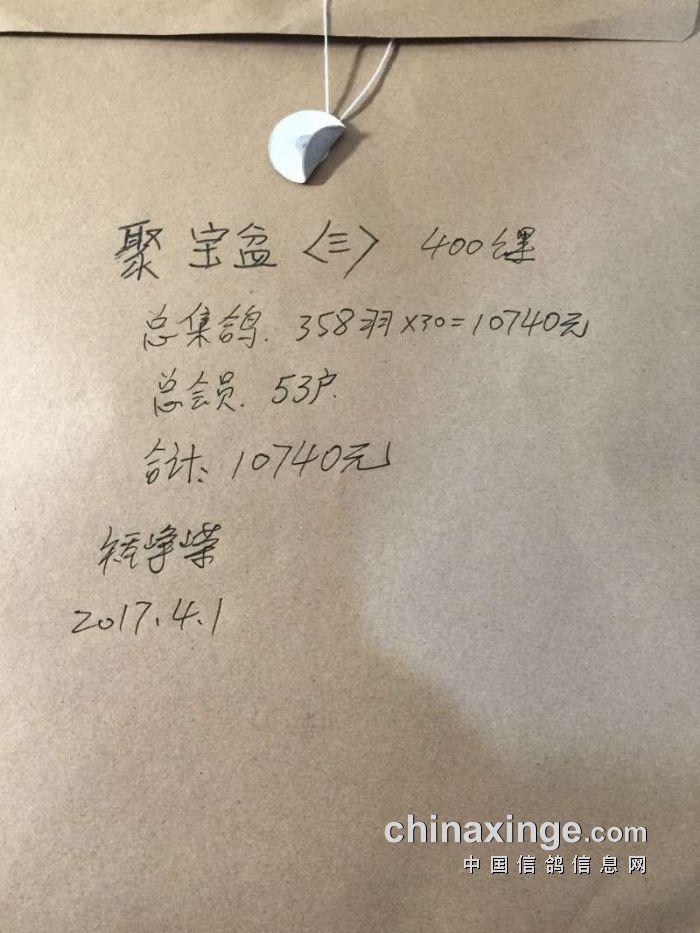 聚宝盆〈三〉 400
总集鸽. 358羽×30=10740元
总会员. 53户.
合计: 10740元
峥嵘
2017.4.1
chinaxinge.com
中国信鸽信息网